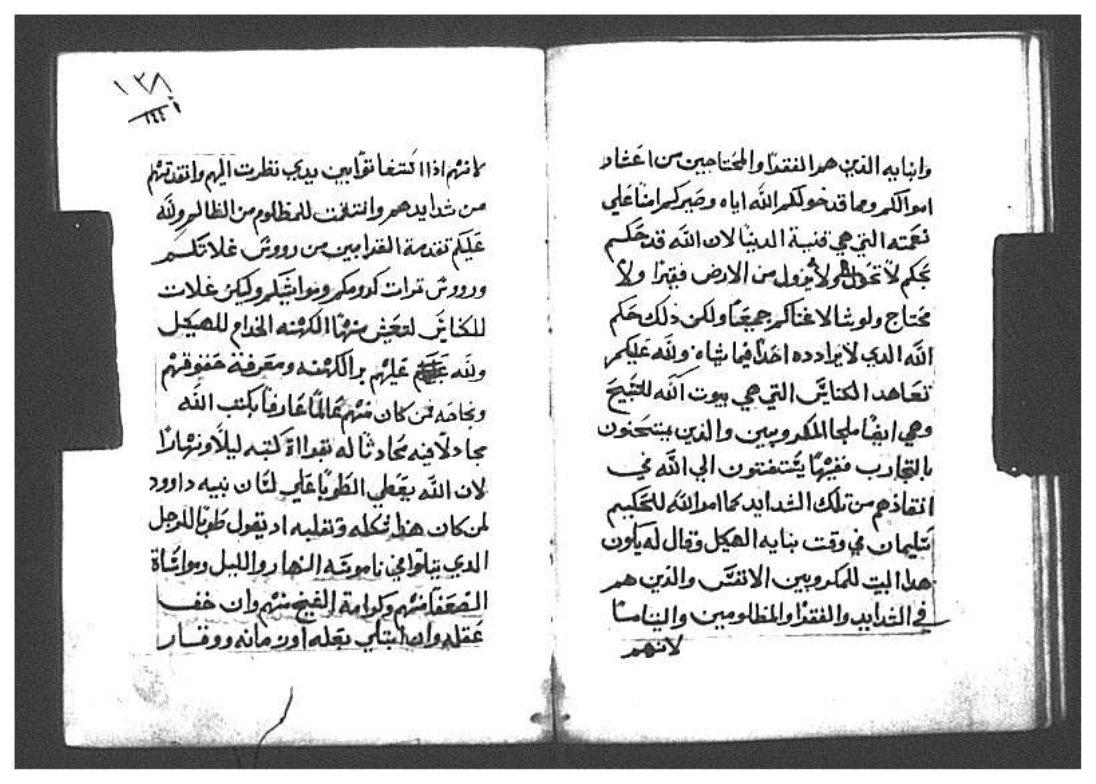 وابنايه الذين هم الفقرا والمحتاجين من اعشار
اموالكم ومما قد خولكم الله اياه وصيركم امنا علي
نعمته التي هي قنية الدنيا لان الله قد حكم
بحكم لا تحول ولا يزول من الارض فقيرا ولا
محتاج ولو شا لاغناكم جميعا ولكن ذلك حكم
الله الدي لا يرادده احدا فيما شاه ولله عليكم
تعاهد الكنايس التي هي بيوت الله للتسبيح
وهي ايضا ملجا المكروبين والدين يمتحنون
بالتجارب ففيها يستغتون الي الله في
انقادهم من تلك الشدايد كما امر الله للحكيم
سليمان في وقت بنايه الهيكل وقال له يكون
هدا البيت للمكروبين الانفس والدين هم
في الشدايد والفقرا والمظلومين والينامسا
لانهم
١٣٨
١٤٤
لانهم اذا اكتنفا توابين يدي نظرت اليهم وانقدتهم
من شدايدهم وانتلفت للمظلوم من الظالم ولله
عليكم تقدمة القرابين من رووس غلاتكم
ورووس تمرات كرومكم ومواشيكم وليكن غلات
للكنايس لتعيش منها الكهنه الخدام للهيكل
ولله عليهم بر الكهنه ومعرفة حقوقهم
وبخاصه من كان منهم عالما عارفا بكتب الله
مجادلا فيه محادثا له بقراة كتبه ليلا ونهارا
لان الله يعطي الطوبا علي لسان نبيه داوود
لمن كان هذا شكله وتقلبه اد يقول طوبا للرجل
الدي يتلوا في ناموسه النهار والليل ومواساة
الضعفا منهم وكرامة الشيخ منهم وان خف
عقله وان ابتلي بعله اوزمانه ووقار